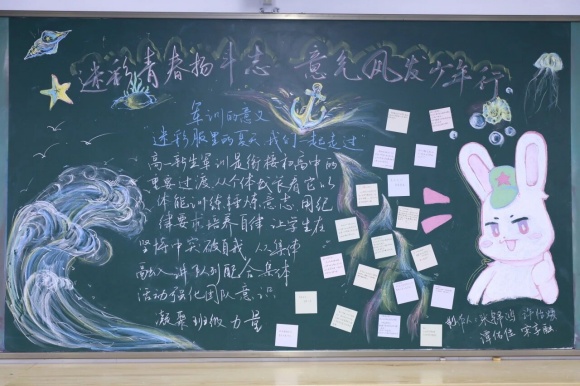 迷彩青春扬斗志 意气风发少年行
军训的意义
迷彩服里的夏天,我们一起走过
高一新生军训是衔接初高中的
重要过渡 从个体成长看 它以
体能训练锤炼意志 用纪
律要求培养自律 让学生在
坚持中突破自我 从集体
融入 讲队列配合 集体
活动强化团队意识
凝聚班级力量
制作人: